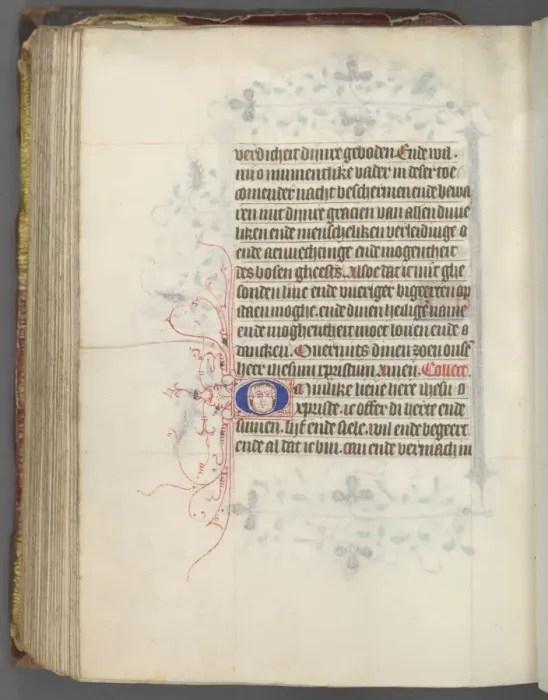 verdicheit dijnre geboden. Ende wil
mi o minnentlike vader in deser toe
comender nacht beschermen ende bewa
ren mit dijnre gracien van allen duue
liken ende menscheliken verleidinge
ende aenvechtinge ende mogentheit
des bosen gheests. Alsoe dat ic mit ghe
sonden liue ende vueriger begeerten op
staen moghe. ende dinen heiligen name
ende moghentheit moet louen ende
dancken. Ouermits dinen zoen onse
heer ihesum xpristum Amen. Collect
O lieue here ihesu
xpriste. ic offer di herte ende
sinnen. lijf ende siele. wil ende begeerte
ende al dat ic bin. can ende vermach in